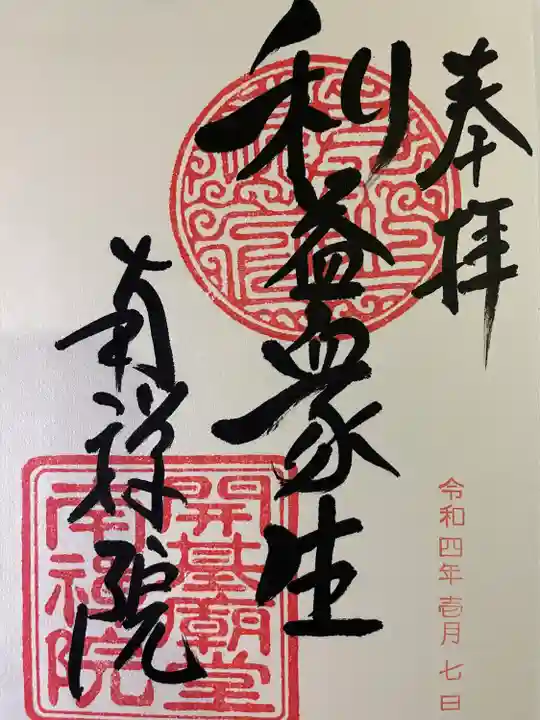 奉拝
令和四年壱月七日
利益衆生
南禅院
開基廟堂
南禅院